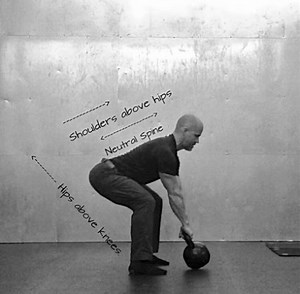 Shoulders above hips
Neutral Spine
Hips above knees